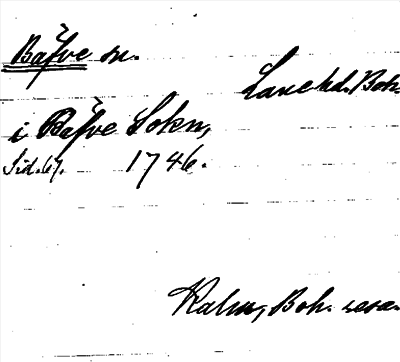 Bäfve sn.
Lane hd. Boh.
i Bäfve Sokn,
Sid. 67. 1746.
Kalm, Boh. resa.